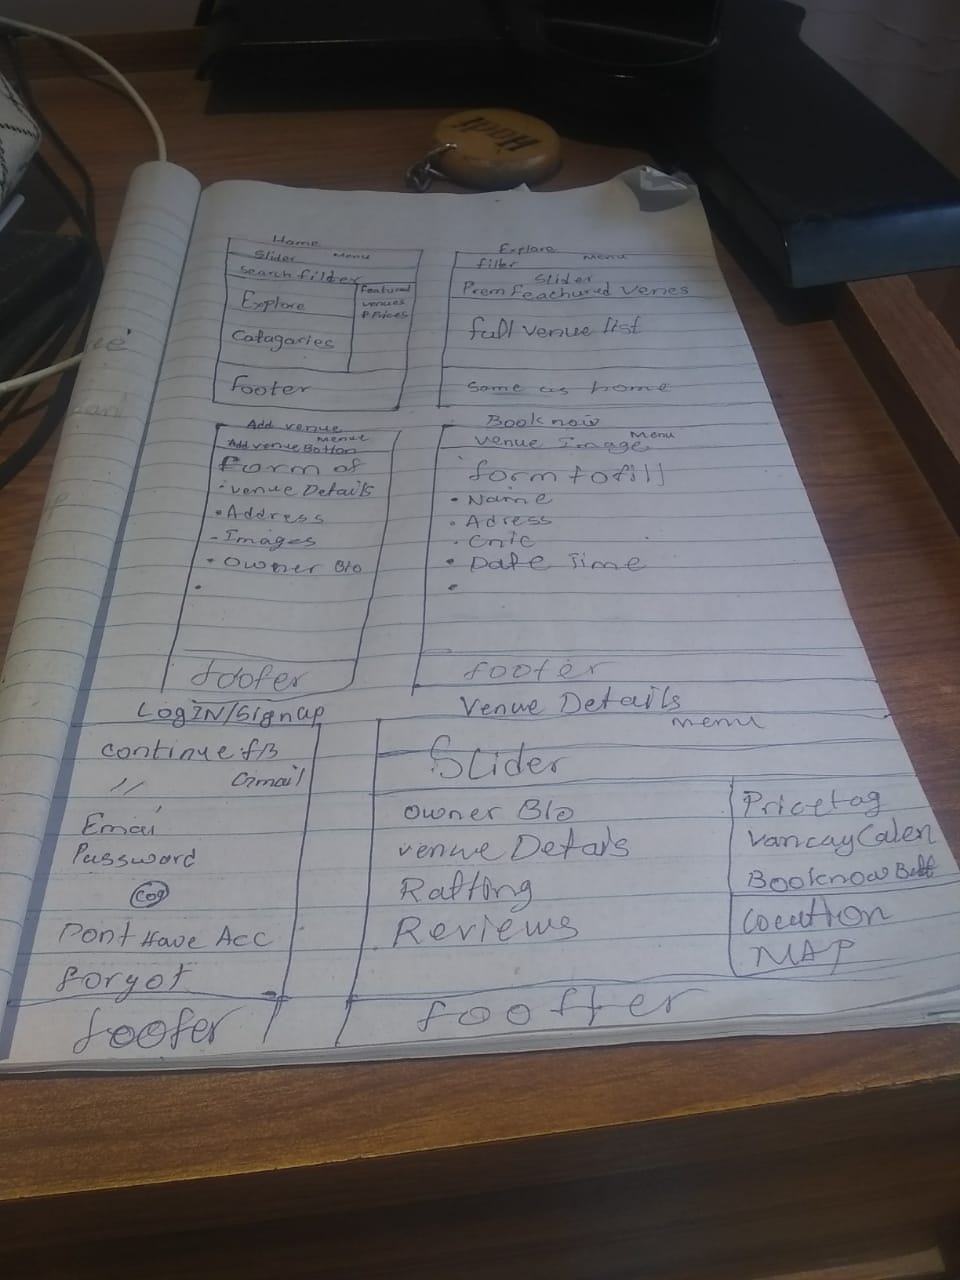 Hadi
Home
Slider Menu
Search filter
Explore
Featured
venues
Prices
Catagaries
Footer
Explore
filter Menu
Slider
Prem Feachured Venes
full venue list
Same as home
Add venue
Menue
Add venue Botton
Form of
venue Details
• Address
- Images
• Owner Bio
•
foofer
Book now
Venue Image Menu
form to fill
• Name
• Adress
• Cnic
• Date Time
•
footer
LogIN/Signup
Continue fB
〃 Gmail
Email
Password
Dont Have Acc
forgot
foofer
Venue Details
menu
Slider
Owner Bio
venue Detals
Ratting
Reviews
Pricetag
VancayCalen
Booknow Butt
Location
MAP
foofter